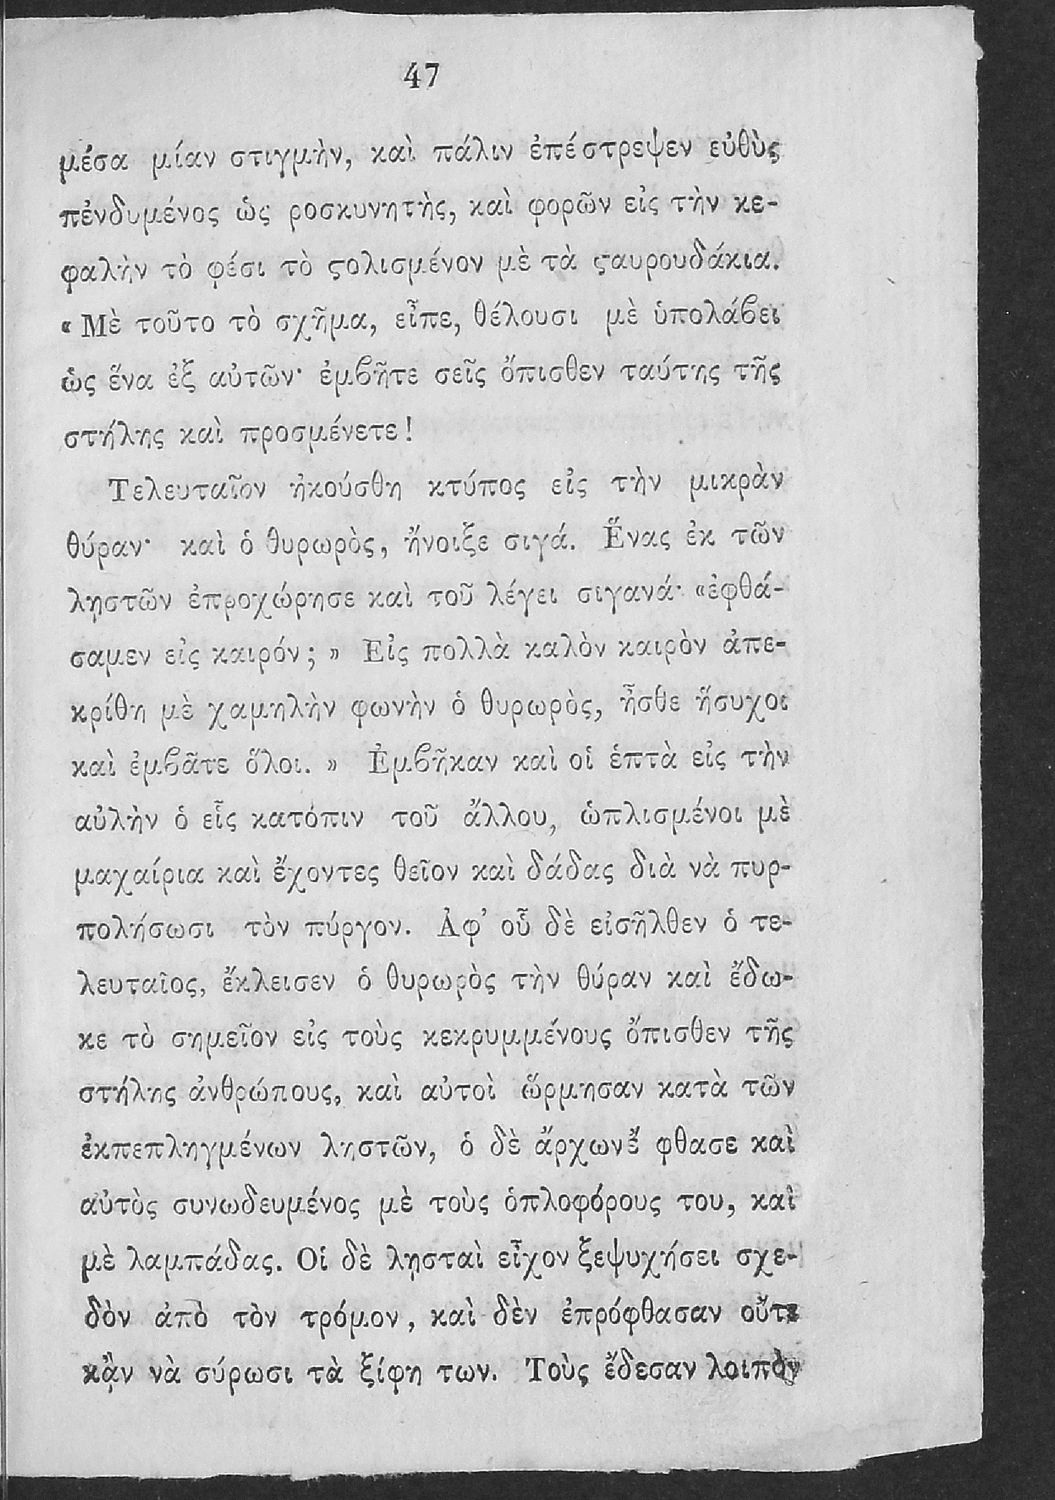 47
μέσα μίαν στιγμὴν, καὶ πάλιν ἐπέστρεψεν εὐθὺς
πἐνδυμένος ὡς ροσκυνητὴς, καὶ φορῶν εἰς τὴν κε-
φαλὴν τὸ φέσι τὸ ϛολισμένον μὲ τὰ ϛαυρουδάκια.
« Μὲ τοῦτο τὸ σχῆμα, εἶπε, θέλουσι μὲ ὑπολάϐει
ὡς ἕνα ἐξ αὐτῶν· ἐμϐῆτε σεῖς ὄπισθεν ταύτης τῆς
στήλης καὶ προσμένετε!
Τελευταῖον ἠκούσθη κτύπος εἰς τὴν μικρὰν
θύραν· καὶ ὁ θυρωρὸς, ἤνοιξε σιγά. Ἕνας ἐκ τῶν
λῃστῶν ἐπροχώρησε καὶ τοῦ λέγει σιγανά· «ἐφθά-
σαμεν εἰς καιρόν; » Εἰς πολλὰ καλὸν καιρὸν ἀπε-
κρίθη μὲ χαμηλὴν φωνὴν ὁ θυρωρὸς, ἦσθε ἥσυχοι
καὶ ἐμϐᾶτε ὅλοι. » Ἐμϐῆκαν καὶ οἱ ἑπτὰ εἰς τὴν
αὐλὴν ὁ εἷς κατόπιν τοῦ ἄλλου, ὡπλισμένοι μὲ
μαχαίρια καὶ ἔχοντες θεῖον καὶ δάδας διὰ νὰ πυρ-
πολήσωσι τὸν πύργον. Ἀφ’ οὗ δὲ εἰσῆλθεν ὁ τε-
λευταῖος, ἔκλεισεν ὁ θυρωρὸς τὴν θύραν καὶ ἔδω-
κε τὸ σημεῖον εἰς τοὺς κεκρυμμένους ὄπισθεν τῆς
στήλης ἀνθρώπους, καὶ αὐτοὶ ὥρμησαν κατὰ τῶν
ἐκπεπληγμένων λῃστῶν, ὁ δὲ ἄρχωνἔ φθασε καὶ
αὐτὸς συνωδευμένος μὲ τοὺς ὁπλοφόρους του, καὶ
μὲ λαμπάδας. Οἱ δὲ λῃσταὶ εἶχον ξεψυχήσει σχε-
δὸν ἀπὸ τὸν τρόμον, καὶ δὲν ἐπρόφθασαν οὔτε
κᾂν νὰ σύρωσι τὰ ξίφη των. Τοὺς ἔδεσαν λοιπὸν